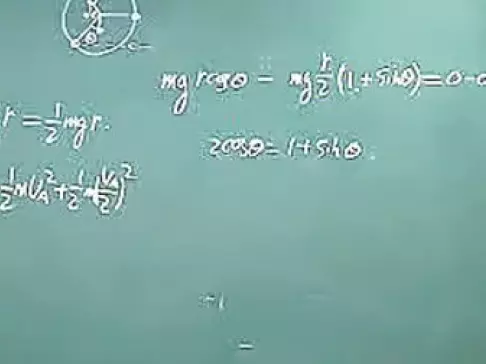 mg r cosθ - mg r/2 (1 + sinθ) = 0 - 0
r = 1/2 mgr.
2cosθ = 1 + sinθ.
1/2 m V_A² + 1/2 m (V_A/2)²